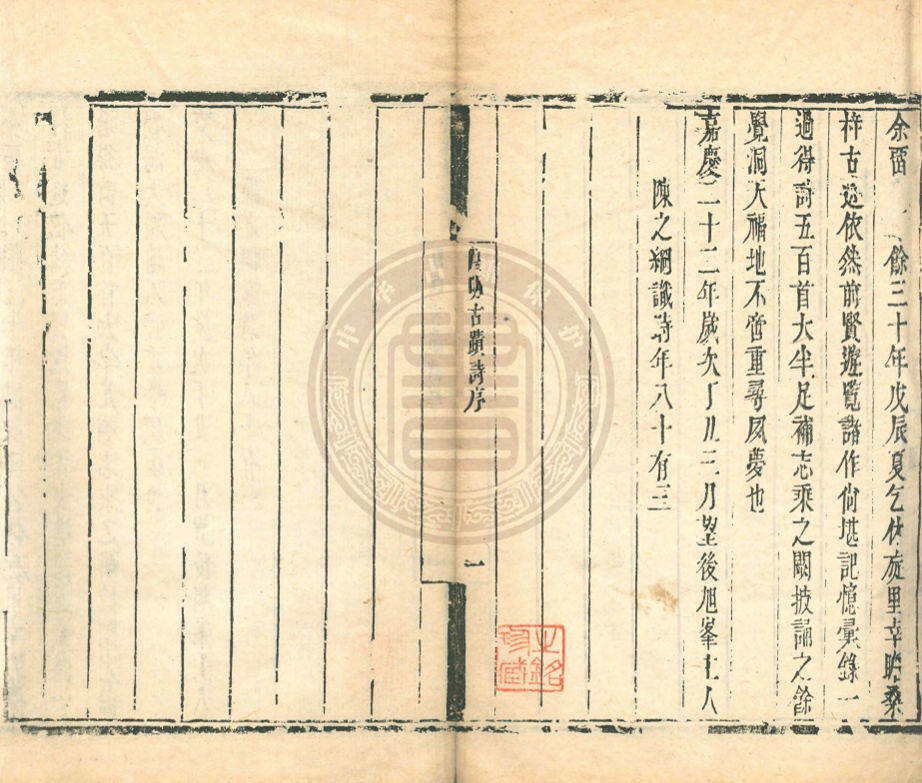 余畱餘三十年戊辰夏乞休旋里幸瞻桑
梓古蹟依然前賢遊覽諸作尙堪記憶彙錄一
過得詩五百首大半足補志乘之闕披誦之餘
覺洞天福地不啻重尋夙夢也
嘉慶二十二年歲次丁丑三月望後旭峯主人
陳之綱識時年八十有三
古蹟詩序
一
之銘
珍藏